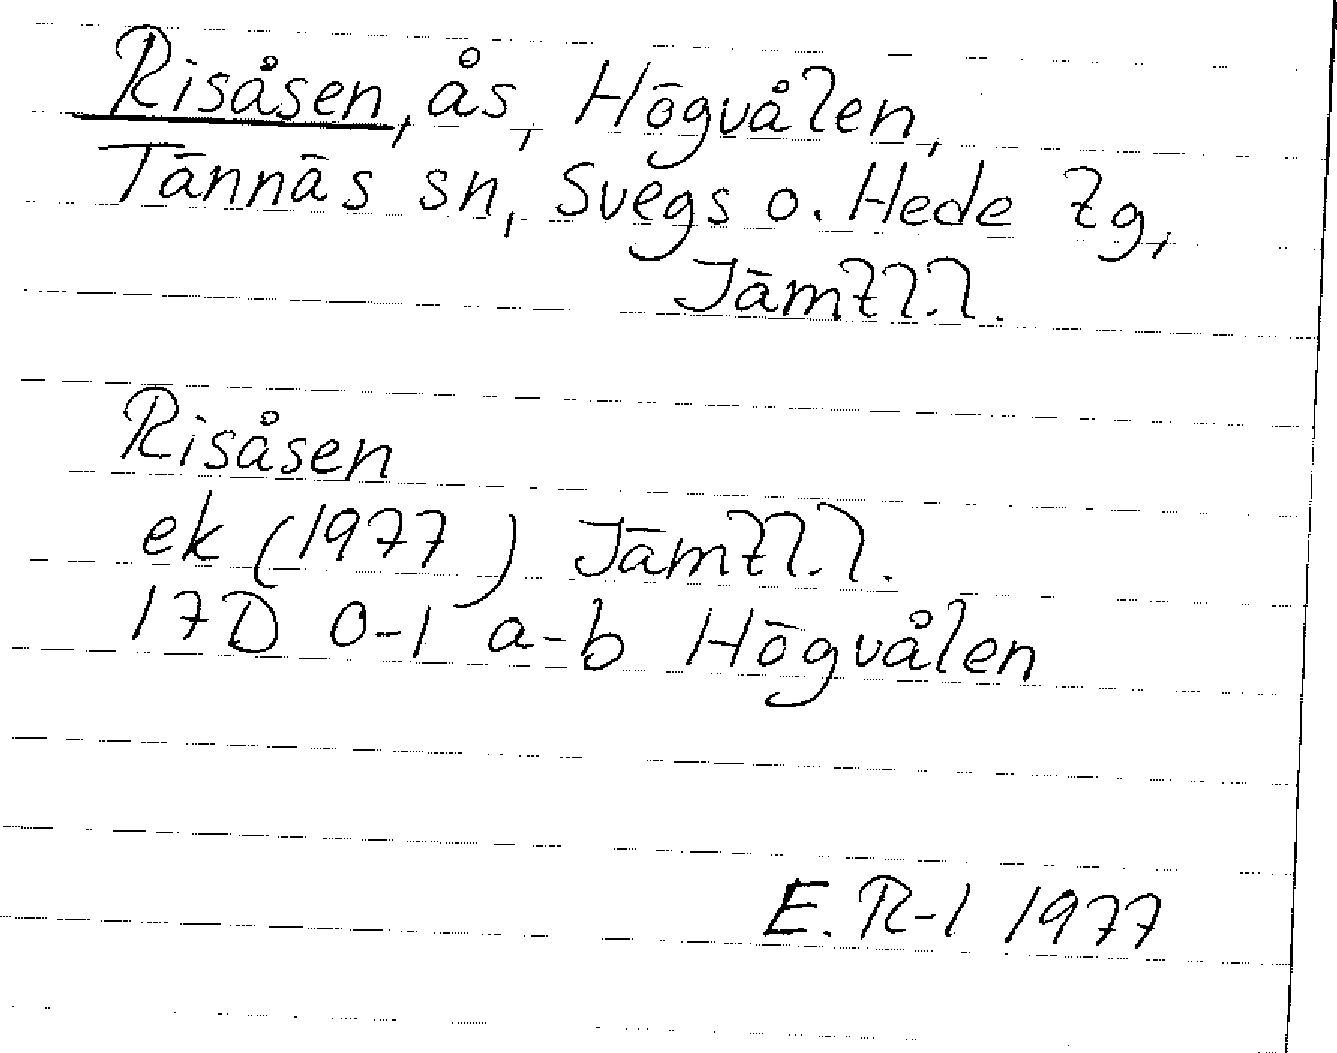 Risåsen, ås, Högvålen,
Tännäs sn, Svegs o. Hede tg,
Jämtl.l.
Risåsen
ek (1977) Jämtl.l.
17D 0-1 a-b Högvålen
E. R-l 1977